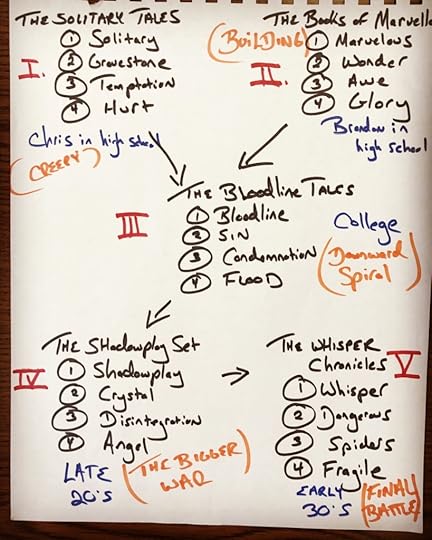 THE SOLITARY TALES
I.
① Solitary
② Gravestone
③ Temptation
④ Hurt
Chris in high school
(CREEPY)
The Books of Marvella
(BUILDING)
II.
① Marvelous
② Wonder
③ Awe
④ Glory
Brandon in
high school
THE Bloodline TALES
III
① Bloodline
② SIN
③ Condemnation
④ FLOOD
College
(Downward
Spiral)
THE Shadowplay Set
IV
① Shadowplay
② Crystal
③ Disintegration
④ Angel
LATE
20'S
(THE BIGGER
WAR)
THE WHISPER
Chronicles
V
① Whisper
② Dangerous
③ Spiders
④ Fragile
EARLY
30'S
(FINAL
BATTLE)